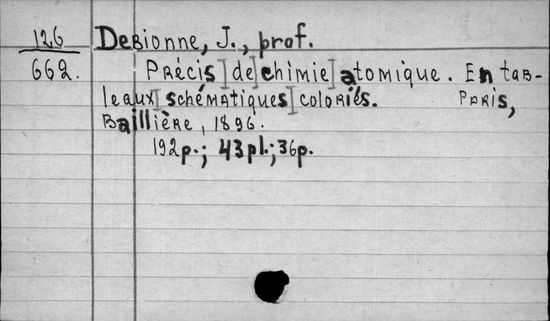 126 Debionne, J., prof.
662. Précis de chimie atomique. En tab-
leaux schématiques coloriés. Paris,
Baillière, 1896.
192p.; 43pl.; 36p.